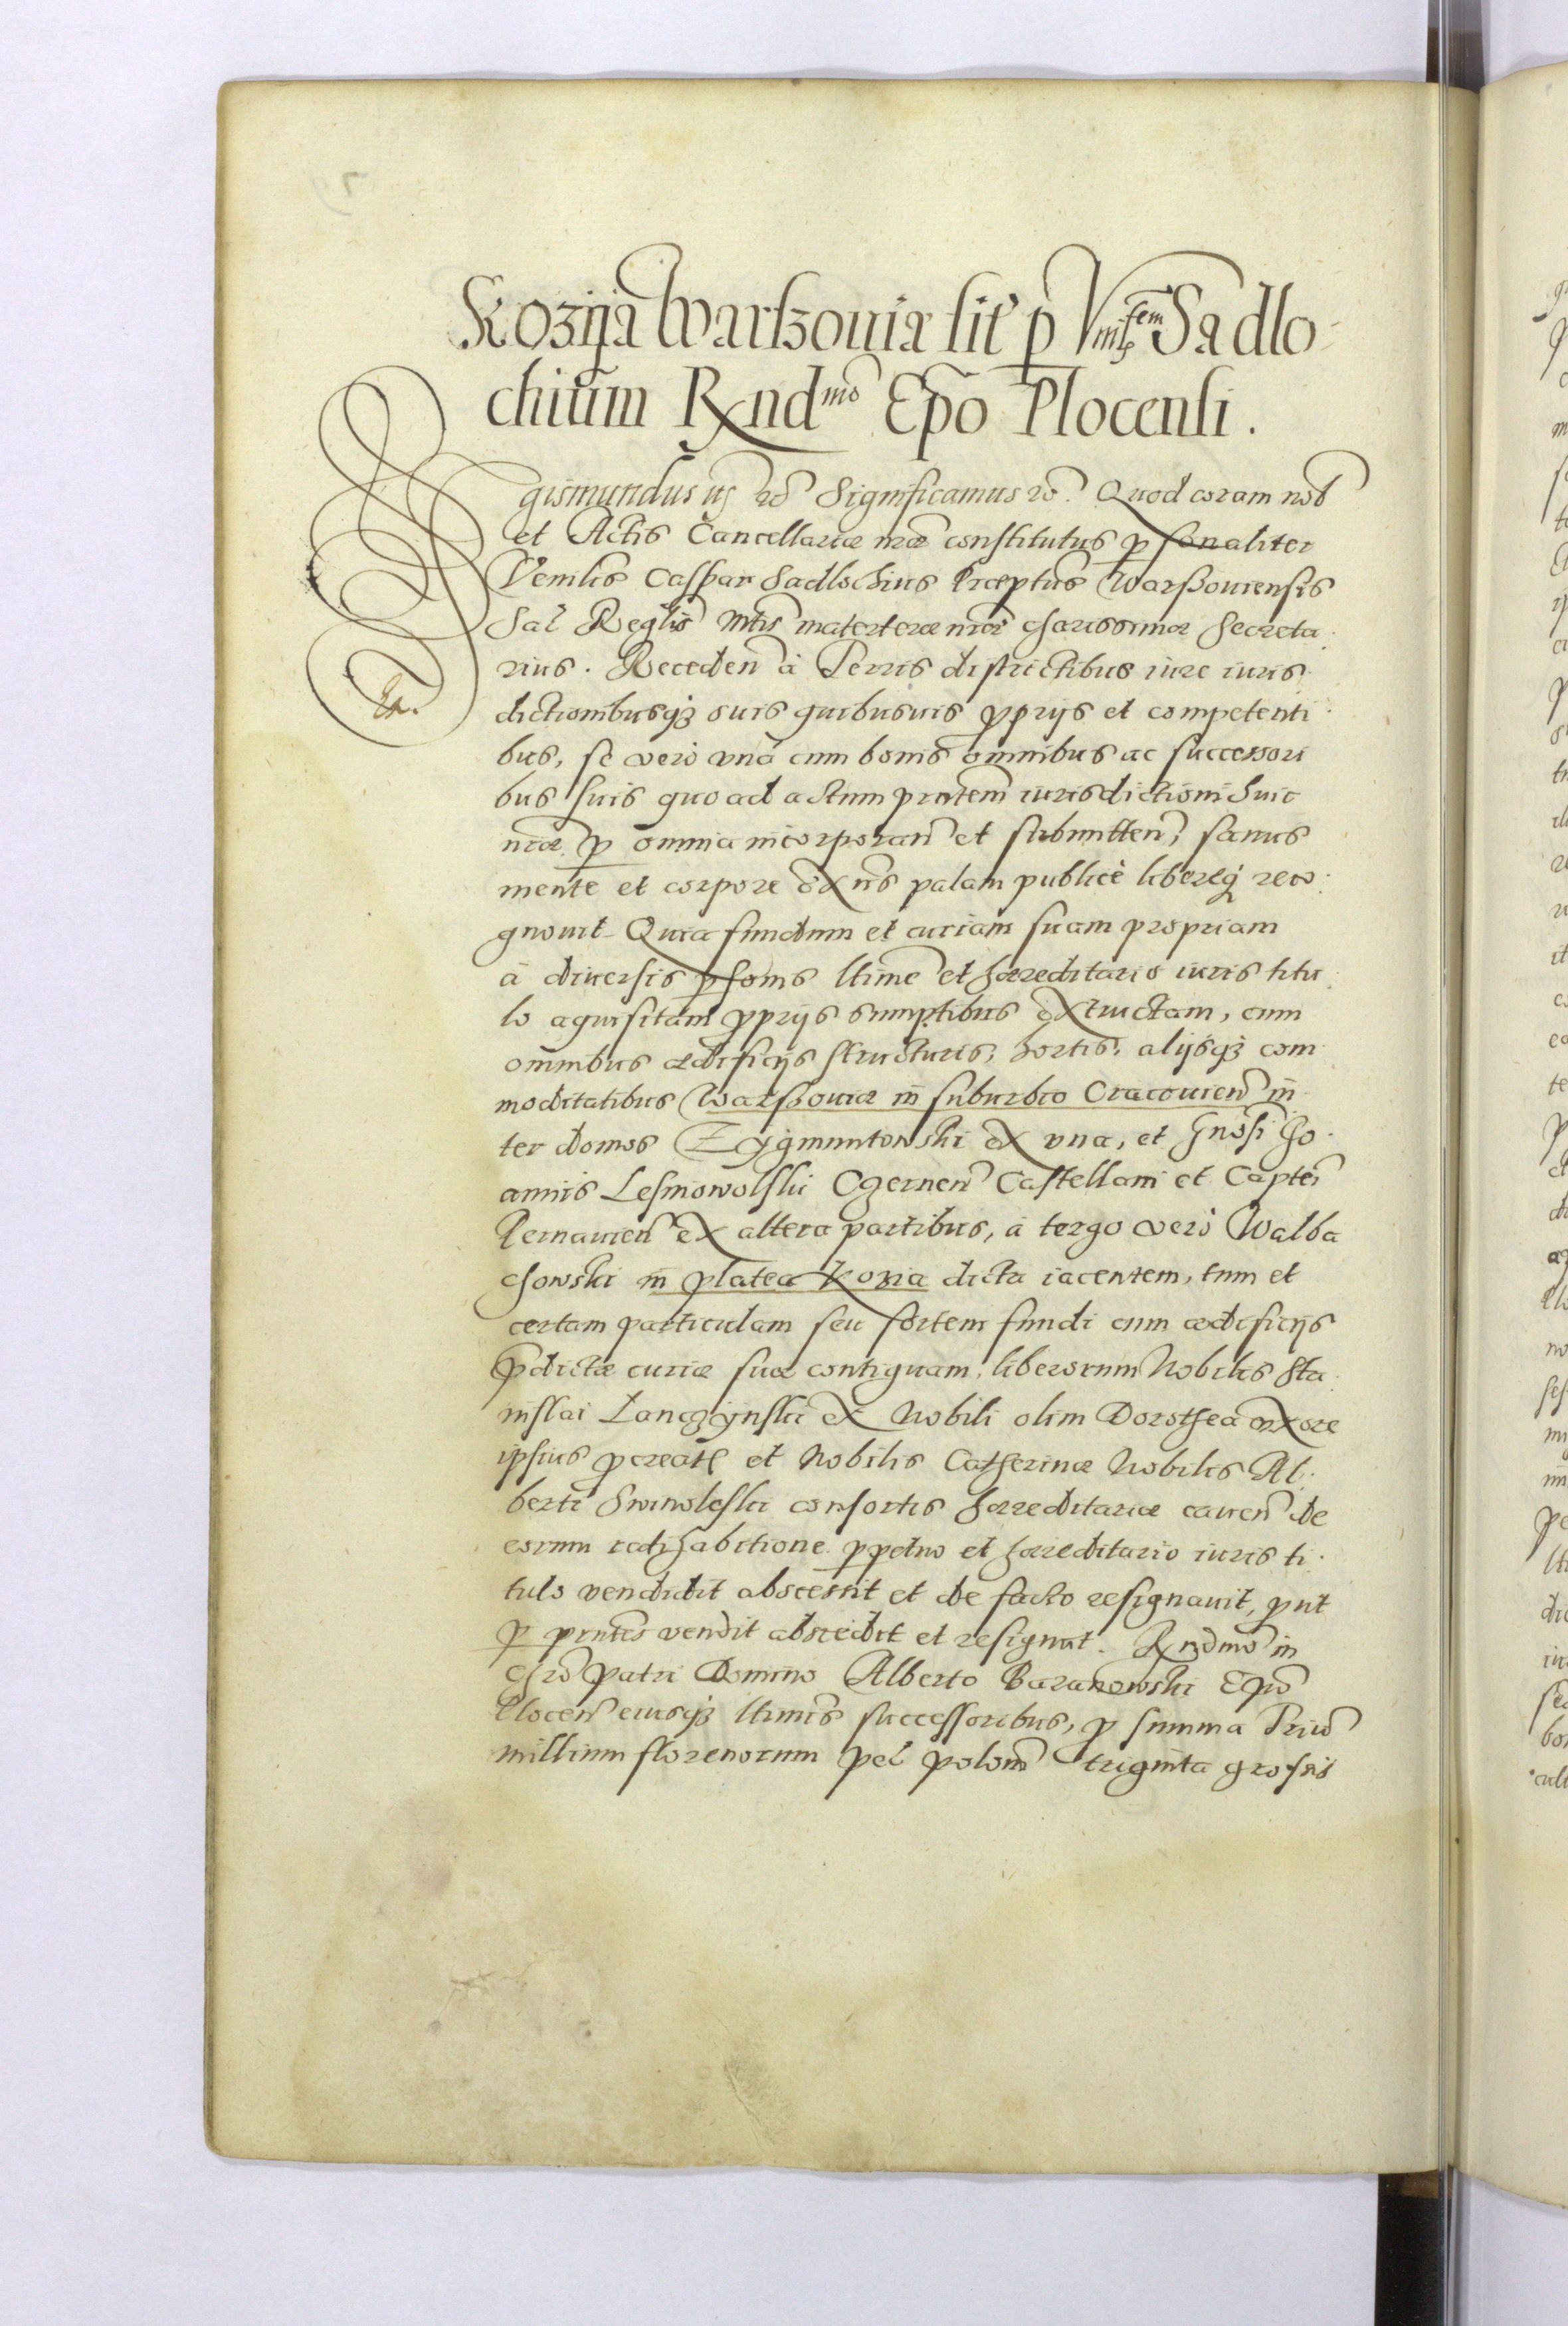 Kozija Warszouiæ sit p Vm̃lem Sadlo
chium Rxndmo Epo Plocensi.
Sigismundus iij etc Significamus etc. Quod coram nob
et Actis Cancellariæ nræ constitutus psonaliter
Venilis Caspar Sadlochius Præptus Warssouiensis
Sac Reglis Mtis materteræ nræ charissimæ Secreta
rius. Receden à Terris districtibus iure iuris
dictionibusq3 suis quibusuis pprijs et competenti
bus, se vero vna cum bonis omnibus ac successori
bus suis quo ad actum prntem iurisdictioni huic
nræ p omnia incorporan et submitten, sanus
mente et corpore exns palam publicè libereq3 reco
gnouit Quia fundum et curiam suam propriam
à diuersis psonis ltime et hæreditario iuris titu
lo aquisitam pprijs sumptibus extructam, cum
omnibus ædificijs structuris, hortis, alijsq3 com
moditatibus Warssouiæ in suburbio Cracouien in
ter domos Zygmuntowski ex vna, et Gnosi Jo
annis Lesniowolski Czernen Castellani et Captei
Pernauien ex altera partibus, à tergo vero Walba
chowski in platea Kozia dicta iacentem, tum et
certam particulam seu sortem fundi cum ædificijs
pdictæ curiæ suæ contiguam, liberorum Nobilis Sta
nislai Lanczynski ex Nobili olim Dorothea vxore
ipsius pcreat et Nobilis Catherinæ Nobilis Al
berti Swinoleski consortis hæreditariæ cauen de
eorum ratihabitione ppetuo et hæreditario iuris ti
tulo vendidit abscessit et de facto resignauit, put
p prntes vendit abscedit et resignat. Rxndmo in
Chro patri Domino Alberto Baranowski Epo
Plocen eiusq3 ltimis successoribus, p summa Triu
millium florenorum pel polon triginta grossis